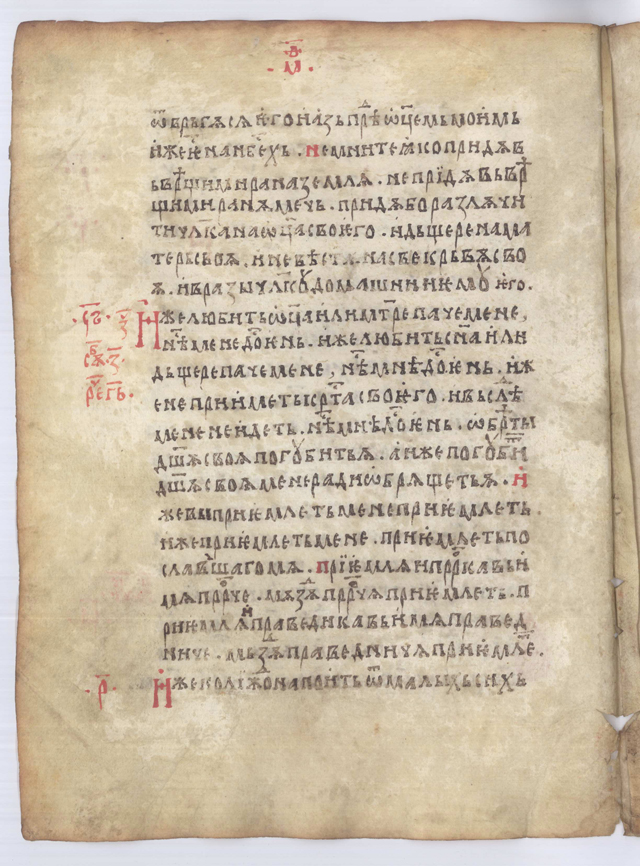 ·в҃·
·м·
ѿврьгѫсѧ и҆го и҆ азь прѣⷣ ѡ҃цемь мои҆мь
и҆же и҆ на нб҃ехь · не мните ꙗко придѫ в
ьврѣщи мира на землѧ · не прїидѫ вьврѣ
щи мира нѫ мечь · придѫ бо разлѫчи
ти чл҃ка на ѡ҃ца свои҆го · и дьщере на ма
терь своѧ · и невѣстѫ на свекрьвѫ сво
ѫ · и врази чл҃коу домашнии и҆моу и҆го ·
Иже любить ѡ҃ца или мт҃ре паче мене ,
нѣⷭ мене достои҆нь · и҆же любить сн҃а или
дьщере паче мене , нѣⷭ мнѣ достои҆нь · и҆ж
е не прии҆меть крⷭта свои҆го · и вьслѣⷣ
мене не идеть · нѣⷭ мнѣ достои҆нь · ѡбрѣты
дш҃ѫ своѧ погоубить ѧ · а иже погоуби
дш҃ѫ своѧ мене ради ѡбрѧщеть ѧ · и
же вы прии҆млеть мене прии҆млеть ·
и҆же прии҆млеть мене · прии҆млеть по
славшаго мѧ · прїи҆млѧи прⷪрка вь и
мѧ прⷪрче · мьздѫ прⷪрчѫ прии҆млеть · п
рии҆млѧи праведника вь имѧ правед
ниче · мьздѫ праведничѫ прии҆млеⷮ ·
·р҃· Иже колижⷣо напоить ѿ малыхь сихь